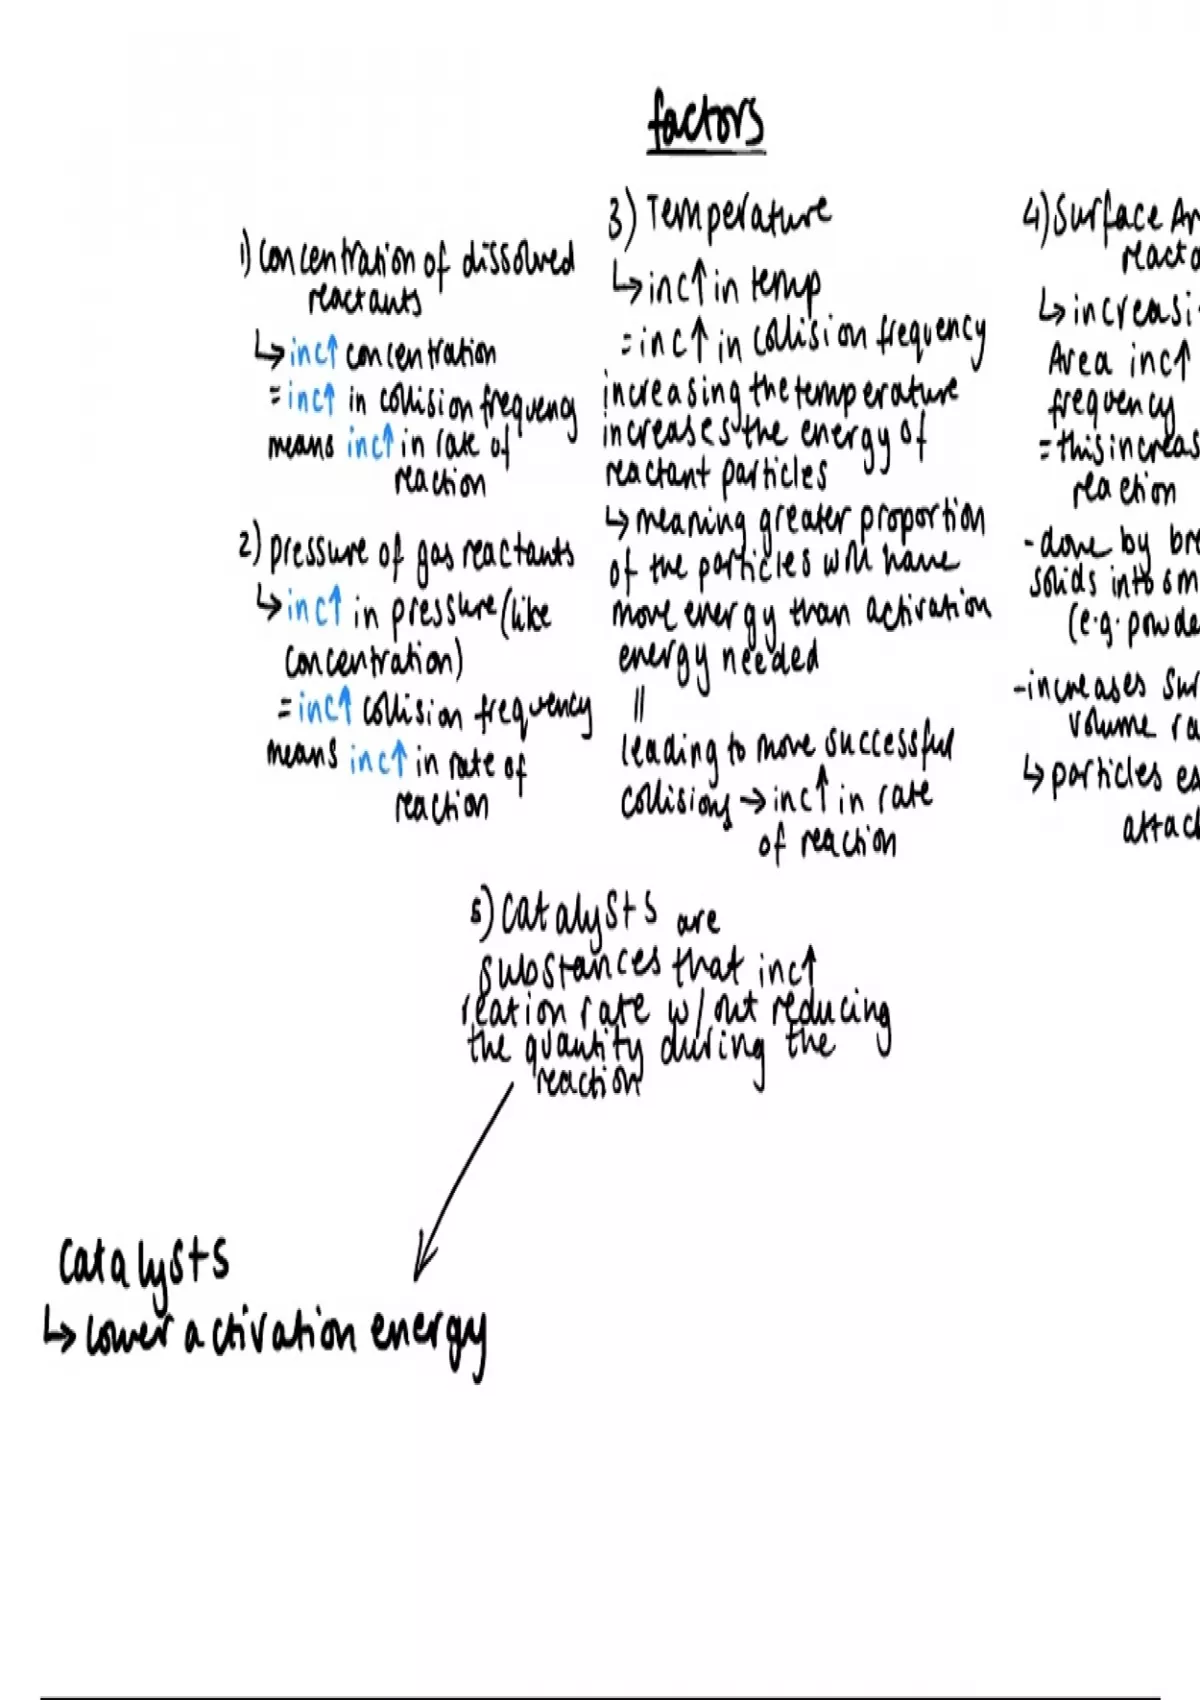 factors
1) concentration of dissolved
reactants
↳ inc↑ concentration
= inc↑ in collision frequency
means inc↑ in rate of
reaction
2) pressure of gas reactants
↳ inc↑ in pressure (like
concentration)
= inc↑ collision frequency
means inc↑ in rate of
reaction
3) Temperature
↳ inc↑ in temp
= inc↑ in collision frequency
increasing the temperature
increases the energy of
reactant particles
↳ meaning greater proportion
of the particles will have
more energy than activation
energy needed
||
leading to more successful
collisions → inc↑ in rate
of reaction
4) Surface Ar
reacta
↳ increasi
Area inc↑
frequency
= this increas
reaction
- done by bre
solids into sm
(e.g. powde
- increases sur
volume ra
↳ particles ea
attac
5) catalysts are
substances that inc↑
reation rate w/out reducing
the quantity during the
reaction
catalysts
↳ lower activation energy